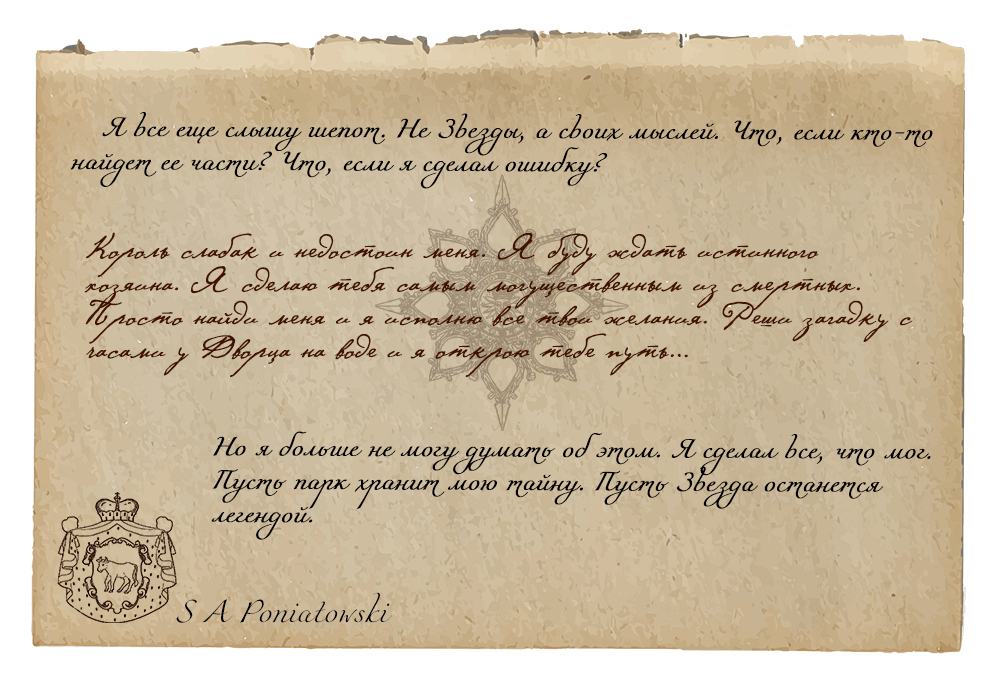 Я все еще слышу шепот. Не Звезды, а своих мыслей. Что, если кто-то
найдет ее части? Что, если я сделал ошибку?
Король слабак и недостоин меня. Я буду ждать истинного
хозяина. Я сделаю тебя самым могущественным из смертных.
Просто найди меня и я исполню все твои желания. Реши загадку с
часами у Дворца на воде и я открою тебе путь...
Но я больше не могу думать об этом. Я сделал все, что мог.
Пусть парк хранит мою тайну. Пусть Звезда останется
легендой.
S A Poniatowski